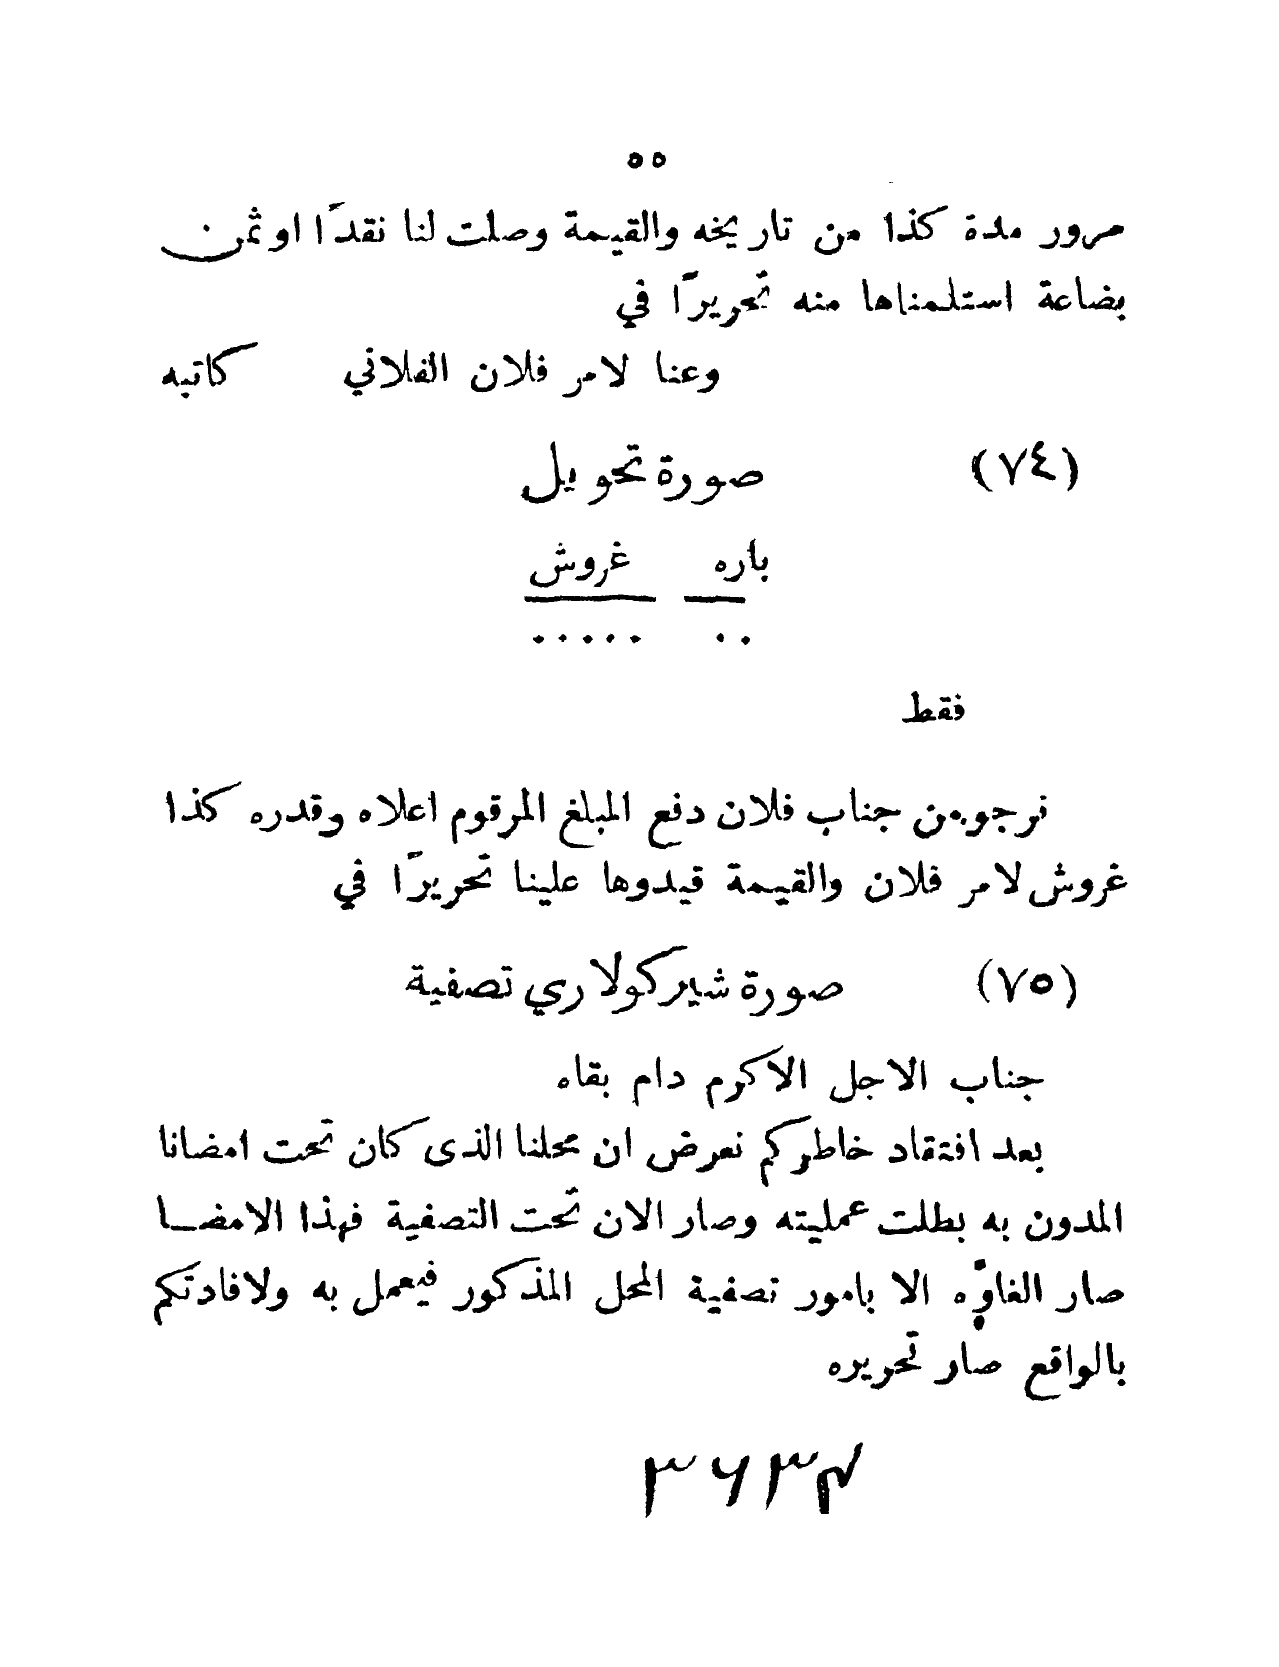 ٥٥
مرور مدة كذا من تاريخه والقيمة وصلت لنا نقدًا او ثمن
بضاعة استلمناها منه تحريرًا في
وعنا لامر فلان الفلاني كاتبه
(٧٤) صورة تحويل
باره غروش
٠٠ ٠٠٠٠٠
فقط
نرجو من جناب فلان دفع المبلغ المرقوم اعلاه وقدره كذا
غروش لامر فلان والقيمة قيدوها علينا تحريرًا في
(٧٥) صورة شيركولاري تصفية
جناب الاجل الاكرم دام بقاه
بعد افتقاد خاطركم نعرض ان محلنا الذى كان تحت امضانا
المدون به بطلت عمليته وصار الان تحت التصفية فهذا الامضـا
صار الغاوّه الا بامور تصفية المحل المذكور فيعمل به ولافادتكم
بالواقع صار تحريره